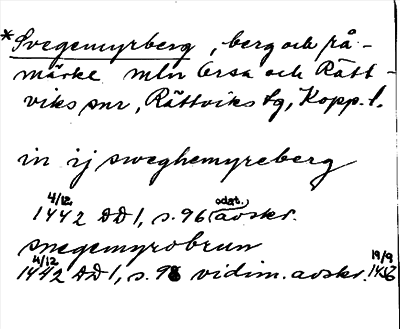 *Svegemyrberg, berg och rå-
märke mln Orsa och Rätt-
viks snr, Rättviks tg, Kopp. l.
in ij sweghemyreberg
4/12 1442 DD 1, s. 96 (odat.) avskr.
snegemyrobrun
4/12 1442 DD 1, s. 98 vidim. avskr. 19/9 1456